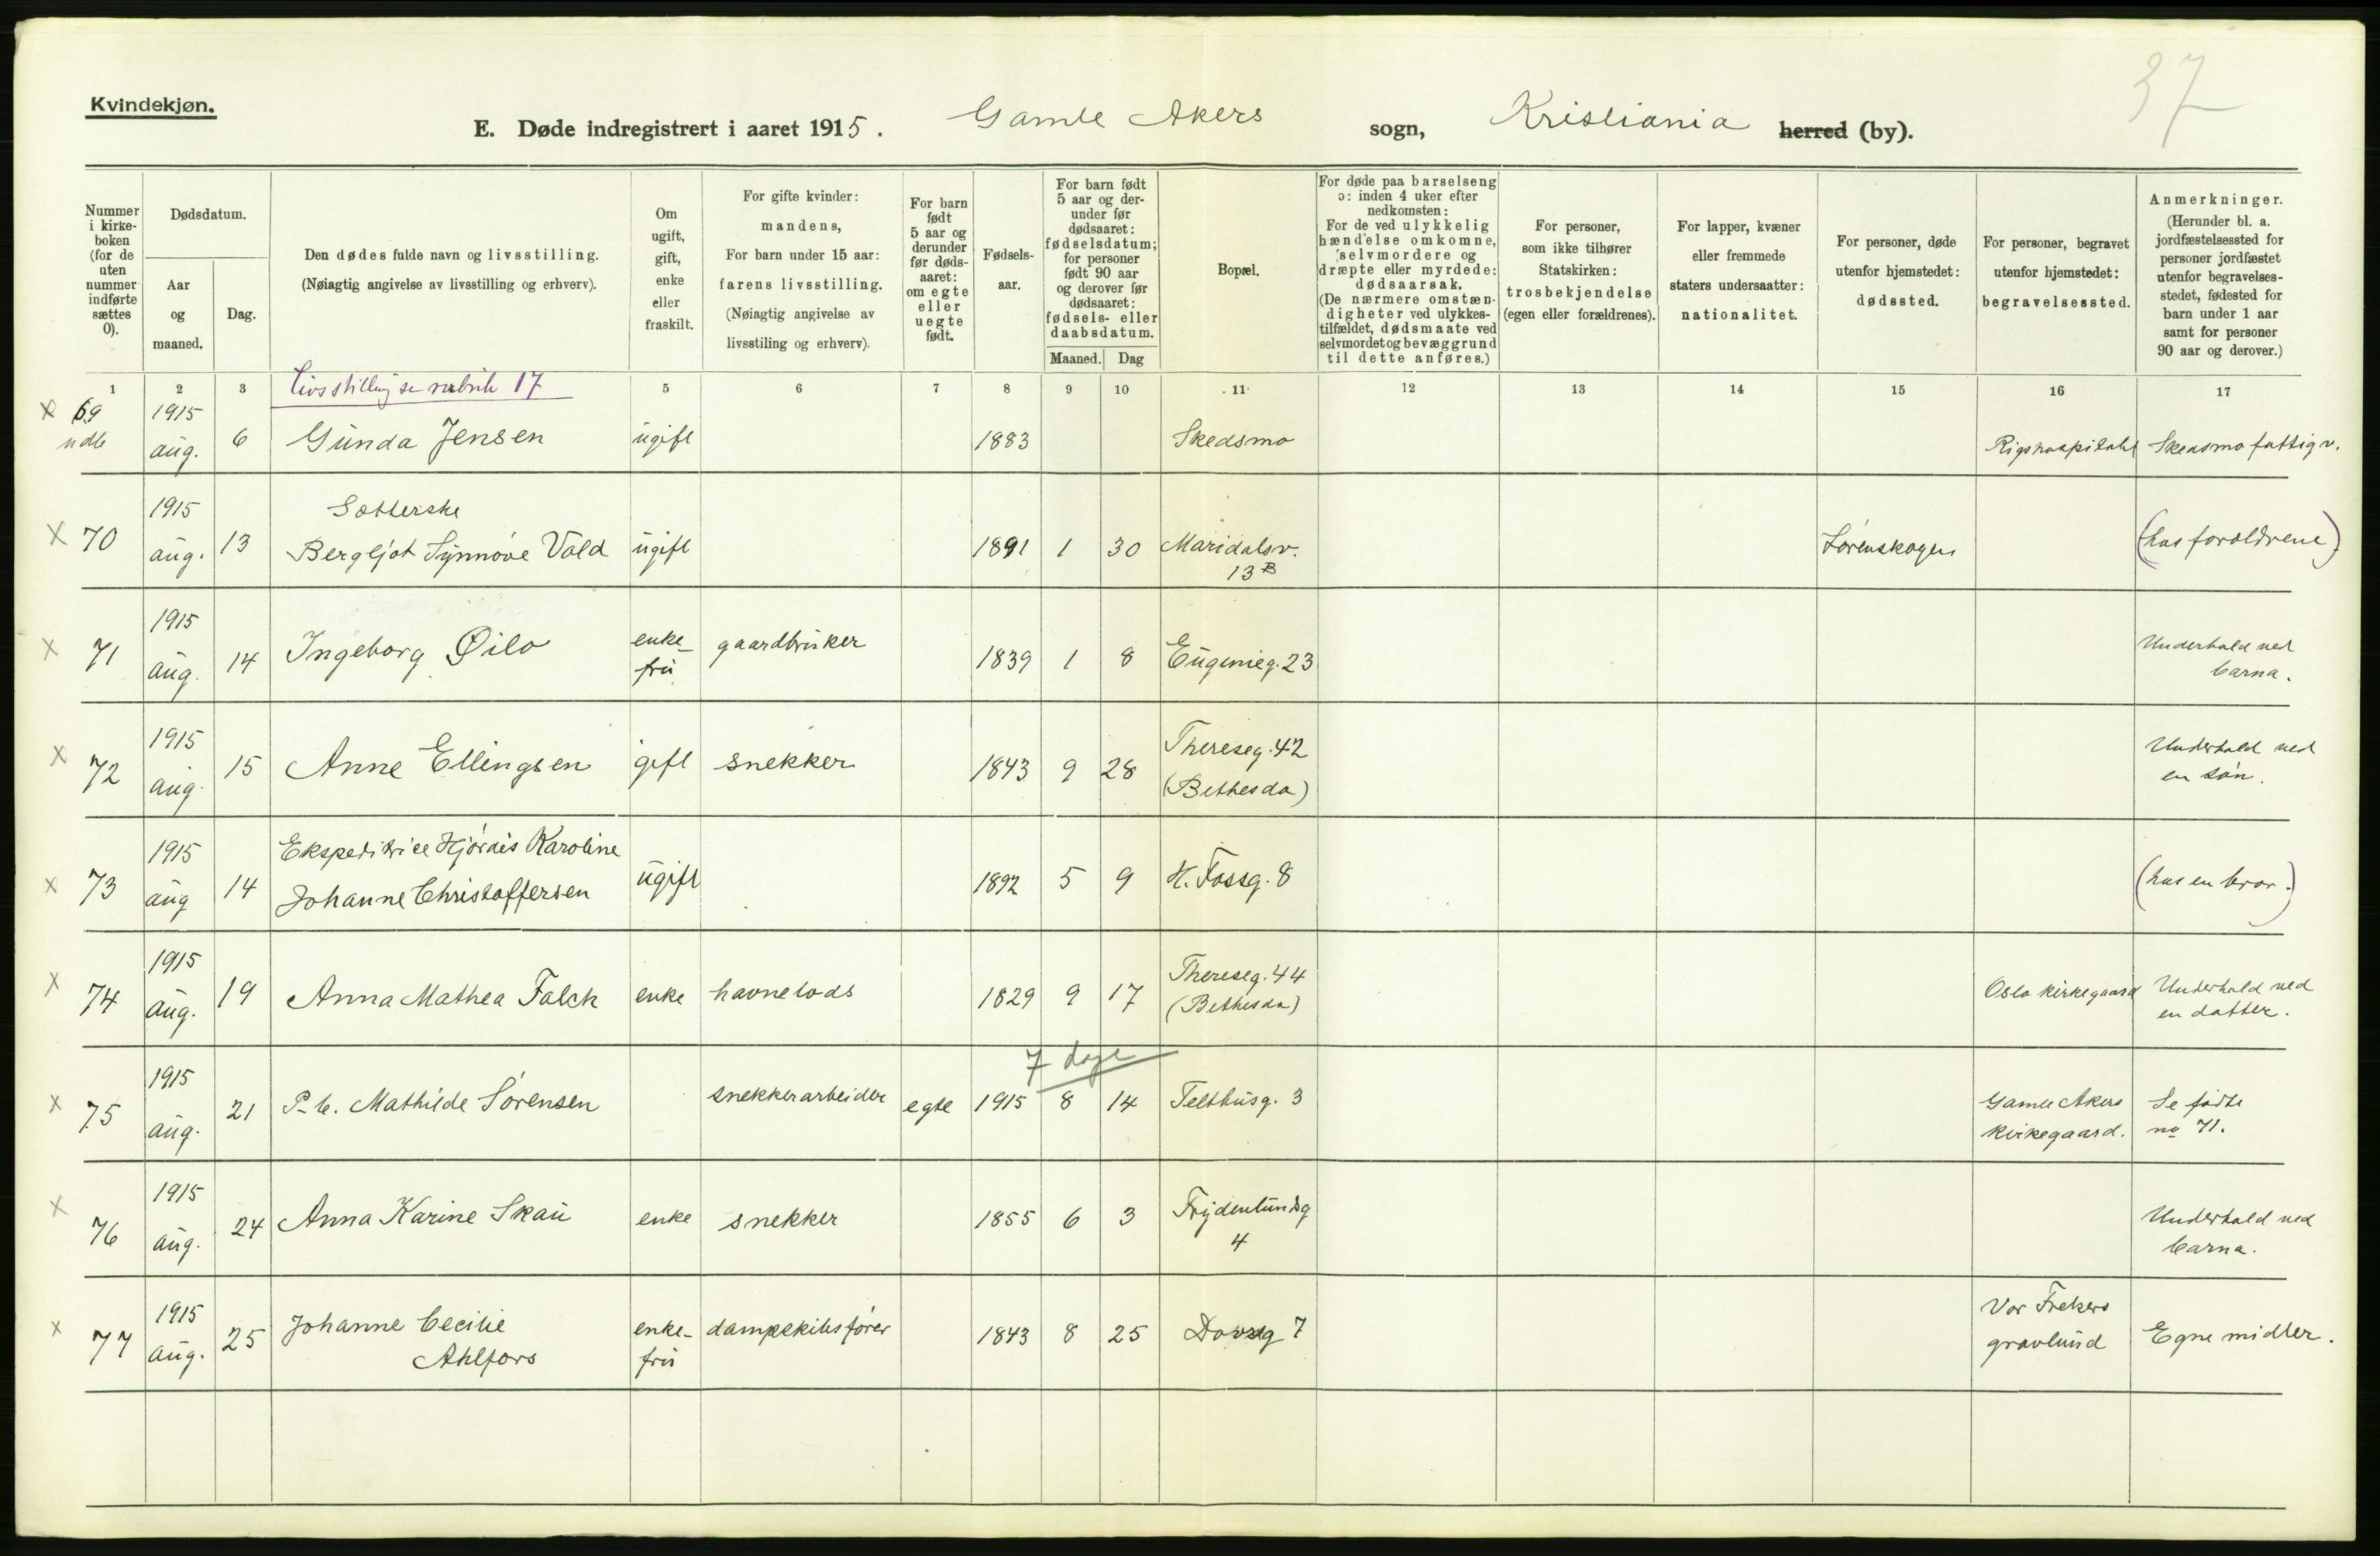 37
Kvindekjøn.
E. Døde indregistrert i aaret 1915. Gamle Akers sogn, Kristiania herred (by).
Nummer i kirke-boken (for de uten nummer indførte sættes 0).
Dødsdatum.
Aar og maaned.
Dag.
Den dødes fulde navn og livsstilling.
(Nøiagtig angivelse av livsstilling og erhverv).
Om ugift, gift, enke eller fraskilt.
For gifte kvinder: mandens,
For barn under 15 aar: farens livsstilling.
(Nøiagtig angivelse av livsstiling og erhverv).
For barn født 5 aar og derunder før døds-aaret: om egte eller uegte født.
Fødsels-aar.
For barn født 5 aar og der-under før dødsaaret: fødselsdatum; for personer født 90 aar og derover før dødsaaret: fødsels- eller daabsdatum.
Maaned. Dag
Bopæl.
For døde paa barselseng ɔ: inden 4 uker efter nedkomsten:
For de ved ulykkelig hændelse omkomne, selvmordere og dræpte eller myrdede: dødsaarsak.
(De nærmere omstæn-digheter ved ulykkes-tilfældet, dødsmaate ved selvmordet og bevæggrund til dette anføres.)
For personer, som ikke tilhører Statskirken: trosbekjendelse (egen eller forældrenes).
For lapper, kvæner eller fremmede staters undersaatter: nationalitet.
For personer, døde utenfor hjemstedet: dødssted.
For personer, begravet utenfor hjemstedet: begravelsessted.
Anmerkninger.
(Herunder bl. a. jordfæstelsessted for personer jordfæstet utenfor begravelses-stedet, fødested for barn under 1 aar samt for personer 90 aar og derover.)
1 2 3 5 6 7 8 9 10 11 12 13 14 15 16 17
Livsstilling se rubrik 17
x 69 udb 1915 aug. 6 Gunda Jensen ugift 1883 Skedsmo Rigshospitalet Skedsmo fattigv.
x 70 1915 aug. 13 Sætterske Bergljot Synnøve Vold ugift 1891 1 30 Maridalsv. 13 B Lørenskogen (hos forældrene)
x 71 1915 aug. 14 Ingeborg Øilo enke-fru gaardbruker 1839 1 8 Eugenieg. 23 Underhold ved barna.
x 72 1915 aug. 15 Anne Ellingsen gift snekker 1843 9 28 Thereseg. 42 (Bethesda) Underhold ved en søn.
x 73 1915 aug 14 Ekspeditrice Hjørdis Karoline Johanne Christoffersen ugift 1892 5 9 H. Fossg. 8 (hos en bror.)
x 74 1915 aug. 19 Anna Mathea Falck enke havnelods 1829 9 17 Thereseg. 44 (Bethesda) Oslo kirkegaard Underhold ved en datter.
7 dage
x 75 1915 aug. 21 P.b. Mathilde Sørensen snekkerarbeider egte 1915 8 14 Telthusg. 3 Gamle Akers kirkegaard. Se fødte no 71.
x 76 1915 aug. 24 Anna Karine Skau enke snekker 1855 6 3 Frydenlundsg 4 Underhold ved barna.
x 77 1915 aug. 25 Johanne Cecilie Ahlfors enke-fru dampskibsfører 1843 8 25 Dovreg 7 Vor Frelsers gravlund Egne midler.